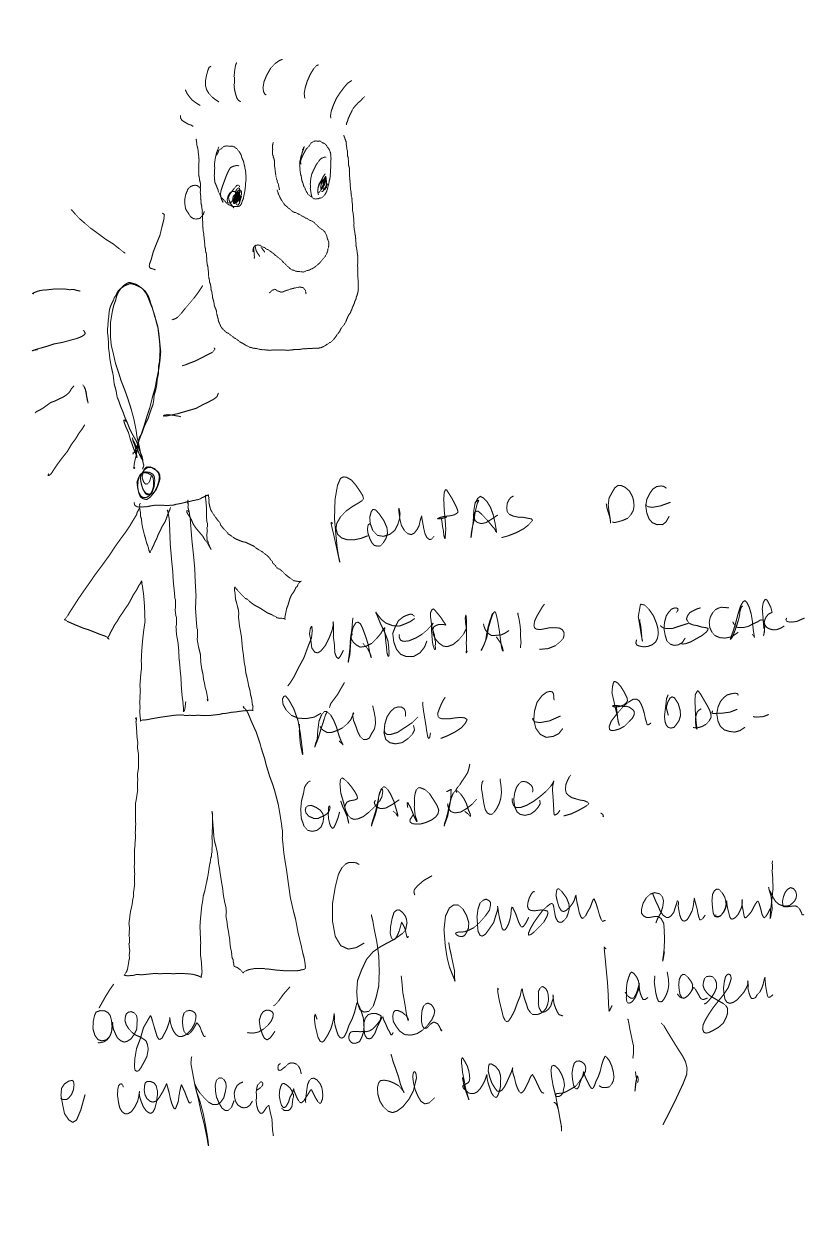 ROUPAS DE
MATERIAIS DESCAR-
TÁVEIS E BIODE-
GRADÁVEIS.
(já pensou quanta
água é usada na lavagem
e confecção de roupas!)